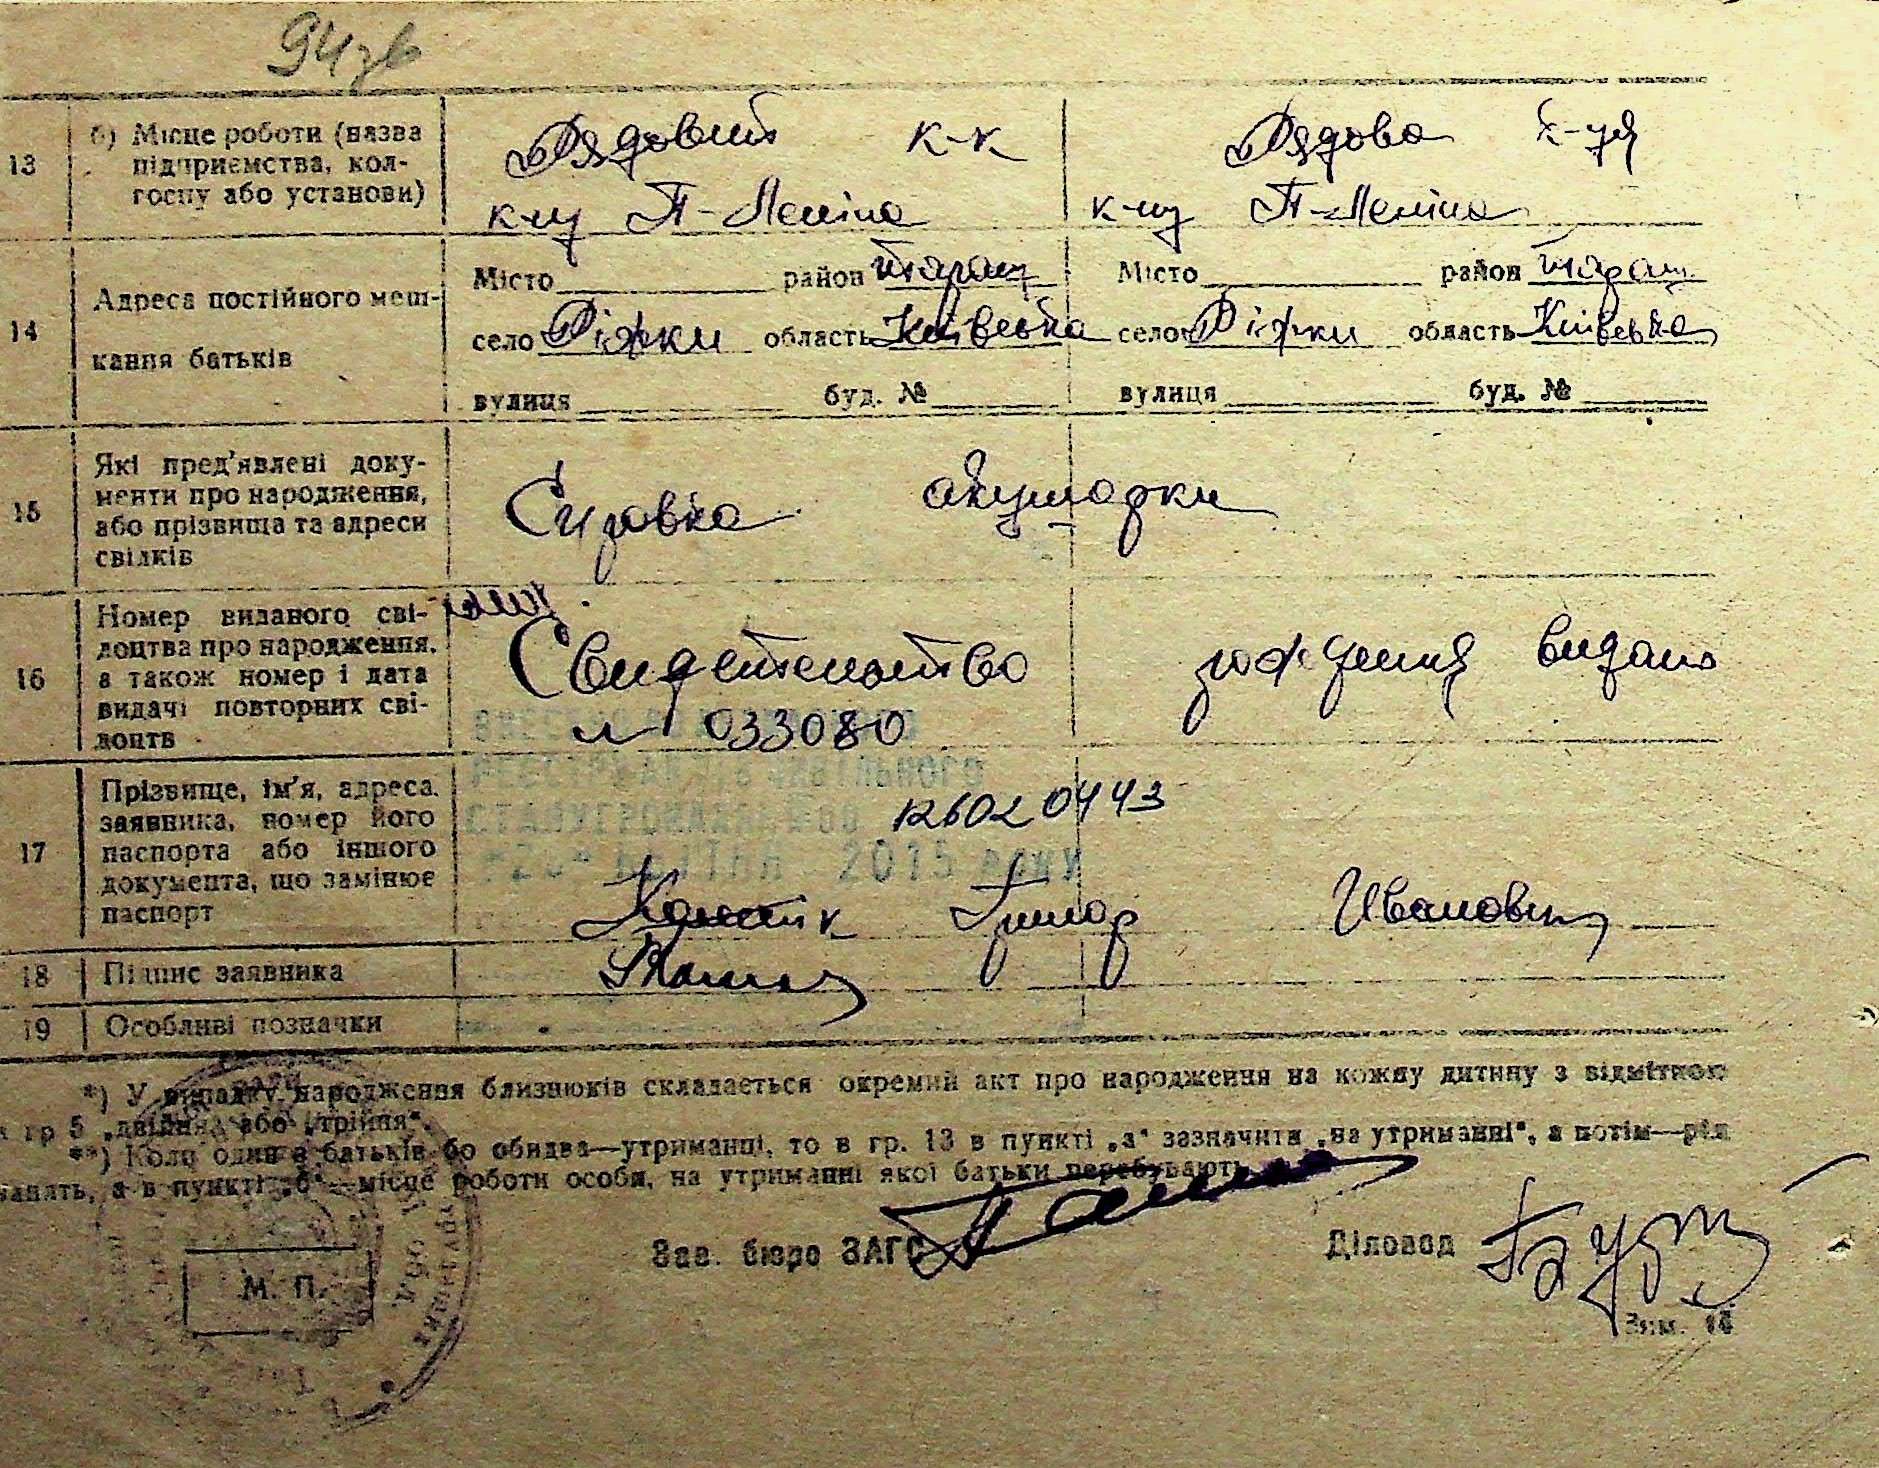 94зв
13 б) Місце роботи (назва підприємства, колгоспу або установи)
Рядовий к-к
к-пу П-Леніна
Рядова к-ця
к-пу П-Леніна
14 Адреса постійного мешкання батьків
Місто район Таращ
село Ріжки область Київська
вулиця буд. №
Місто район Таращ.
село Ріжки область Київська
вулиця буд. №
15 Які пред'явлені документи про народження, або прізвища та адреси свідків
Справка акушорки
16 Номер виданого свідоцтва про народження, а також номер і дата видачі повторних свідоцтв
Свидетельство рождения видано
№ 033080
РЕЄСТРУ АКТІВ ЦИВІЛЬНОГО
2015 РОКУ
12602 0443
17 Прізвище, ім'я, адреса заявника, номер його паспорта або іншого документа, що замінює паспорт
Григор Иванович
18 Підпис заявника
19 Особливі позначки
*) У випадку народження близнюків складається окремий акт про народження на кожну дитину з відміткою
гр 5 „двійня або трійня".
**) Коли один з батьків бо обидва—утриманці, то в гр. 13 в пункті „а" зазначити „на утриманні", а потім—рід
занять, а в пункті „б"—місце роботи особи, на утриманні якої батьки перебувають
Зав. бюро ЗАГС
Діловод
М. П.
Зам. 16